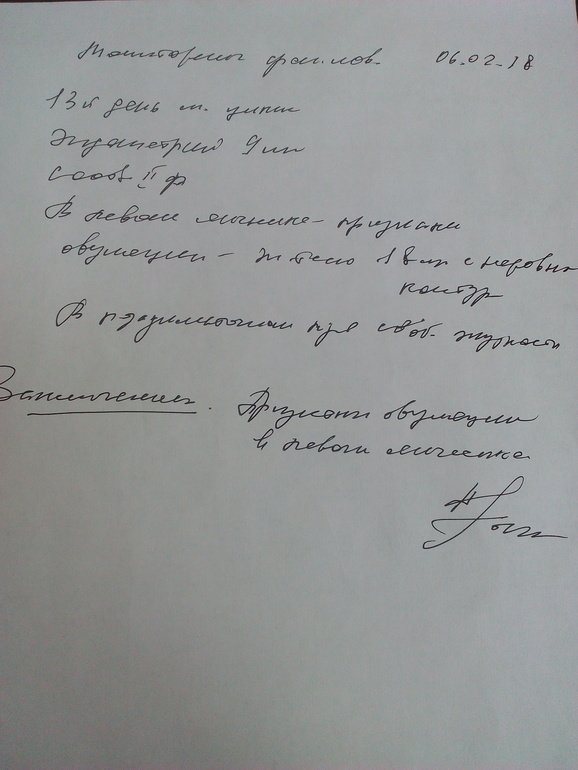 Мониторинг фол-лов. 06.02.18
13й день м. цикла
Эндометрий 9 мм
соотв II ф
В левом яичнике - признаки
овуляции - ж тело 18 мм с неровн
контур
В позадиматочном пр-ве своб. жидкость
Заключение. Признаки овуляции
в левом яичнике.